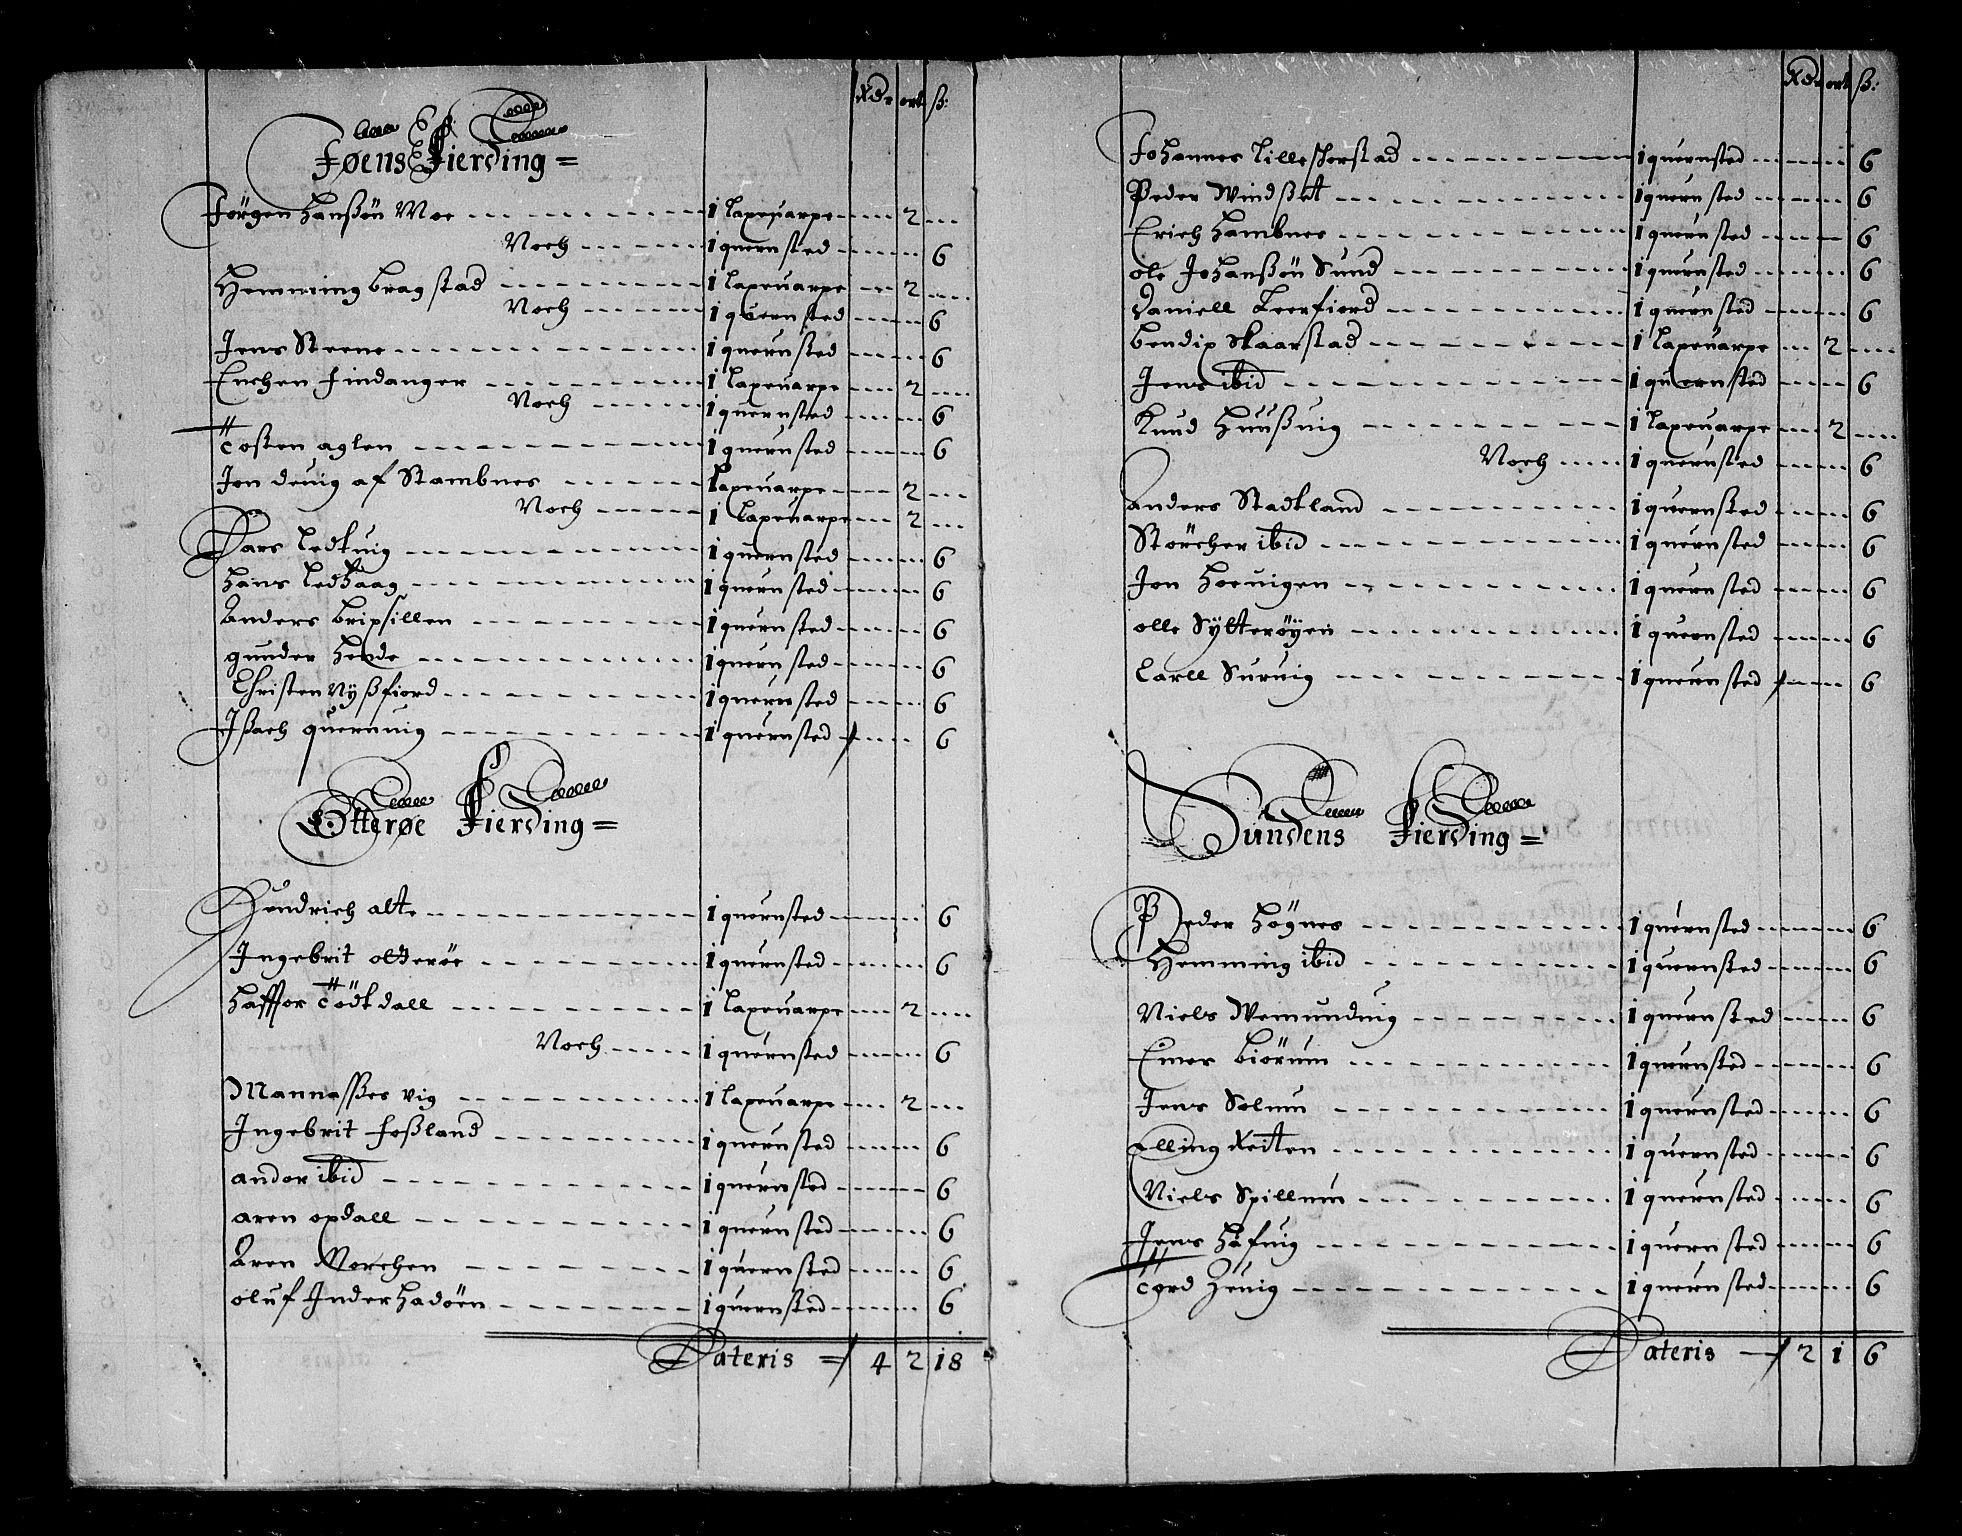 Rdr ort ß:
Føens Fierding =
Jörgen Hanßön Moe 1 laxeuarpe 2
Noch 1 quernsted 6
Hemming bragstad 1 laxeuarpe 2
Noch 1 quernsted 6
Jens Steene 1 quernsted 6
Erichen Findanger 1 laxeuarpe 2
Noch 1 quernsted 6
Tosten aglen 1 quernsted 6
Jon deuig af Stambnes laxeuarpe 2
Noch 1 laxeuarpe 2
Lars Ledtuig 1 quernsted 6
Hans Ledhaag 1 quernsted 6
Anders bripsillen 1 quernsted 6
gunder Hende 1 quernsted 6
Christen Nyßfiord 1 quernsted 6
Jßach quernuig 1 quernsted 6
Otterøe Fierding =
Hendrich alte 1 quernsted 6
Ingebrit otteröe 1 quernsted 6
Haffor Tödtdall 1 laxeuarpe 2
Noch 1 quernsted 6
Mannasßes vig 1 laxeuarpe 2
Ingebrit Foßland 1 quernsted 6
andor ibid 1 quernsted 6
aren opdall 1 quernsted 6
Aren Morchen 1 quernsted 6
oluf Inderhadöen 1 quernsted 6
Lateris = 4 2 18
Rdr ort ß:
Johannes Lilleskorstad 1 quernsted 6
Peder Windßet 1 quernsted 6
Erich Hambnes 1 quernsted 6
ole Johanßön Sund 1 quernsted 6
Daniell Leerfiord 1 quernsted 6
bendix Skaarstad 1 laxeuarpe 2
Jens ibid 1 quernsted 6
Knud Huußuig 1 laxeuarpe 2
Noch 1 quernsted 6
Anders Stadtland 1 quernsted 6
Störcher ibid 1 quernsted 6
Jon Hoeuigen 1 quernsted 6
olle Sytteröyen 1 quernsted 6
Carll Suruig 1 quernsted 6
Sundens Fierding =
Peder Höynes 1 quernsted 6
Hemming ibid 1 quernsted 6
Niels Wemunduig 1 quernsted 6
Einer biörum 1 quernsted 6
Jens Solum 1 quernsted 6
Elling Reitten 1 quernsted 6
Niels Spillum 1 quernsted 6
Jens Hafuig 1 quernsted 6
Tord 1 quernsted 6
Lateris 2 1 6